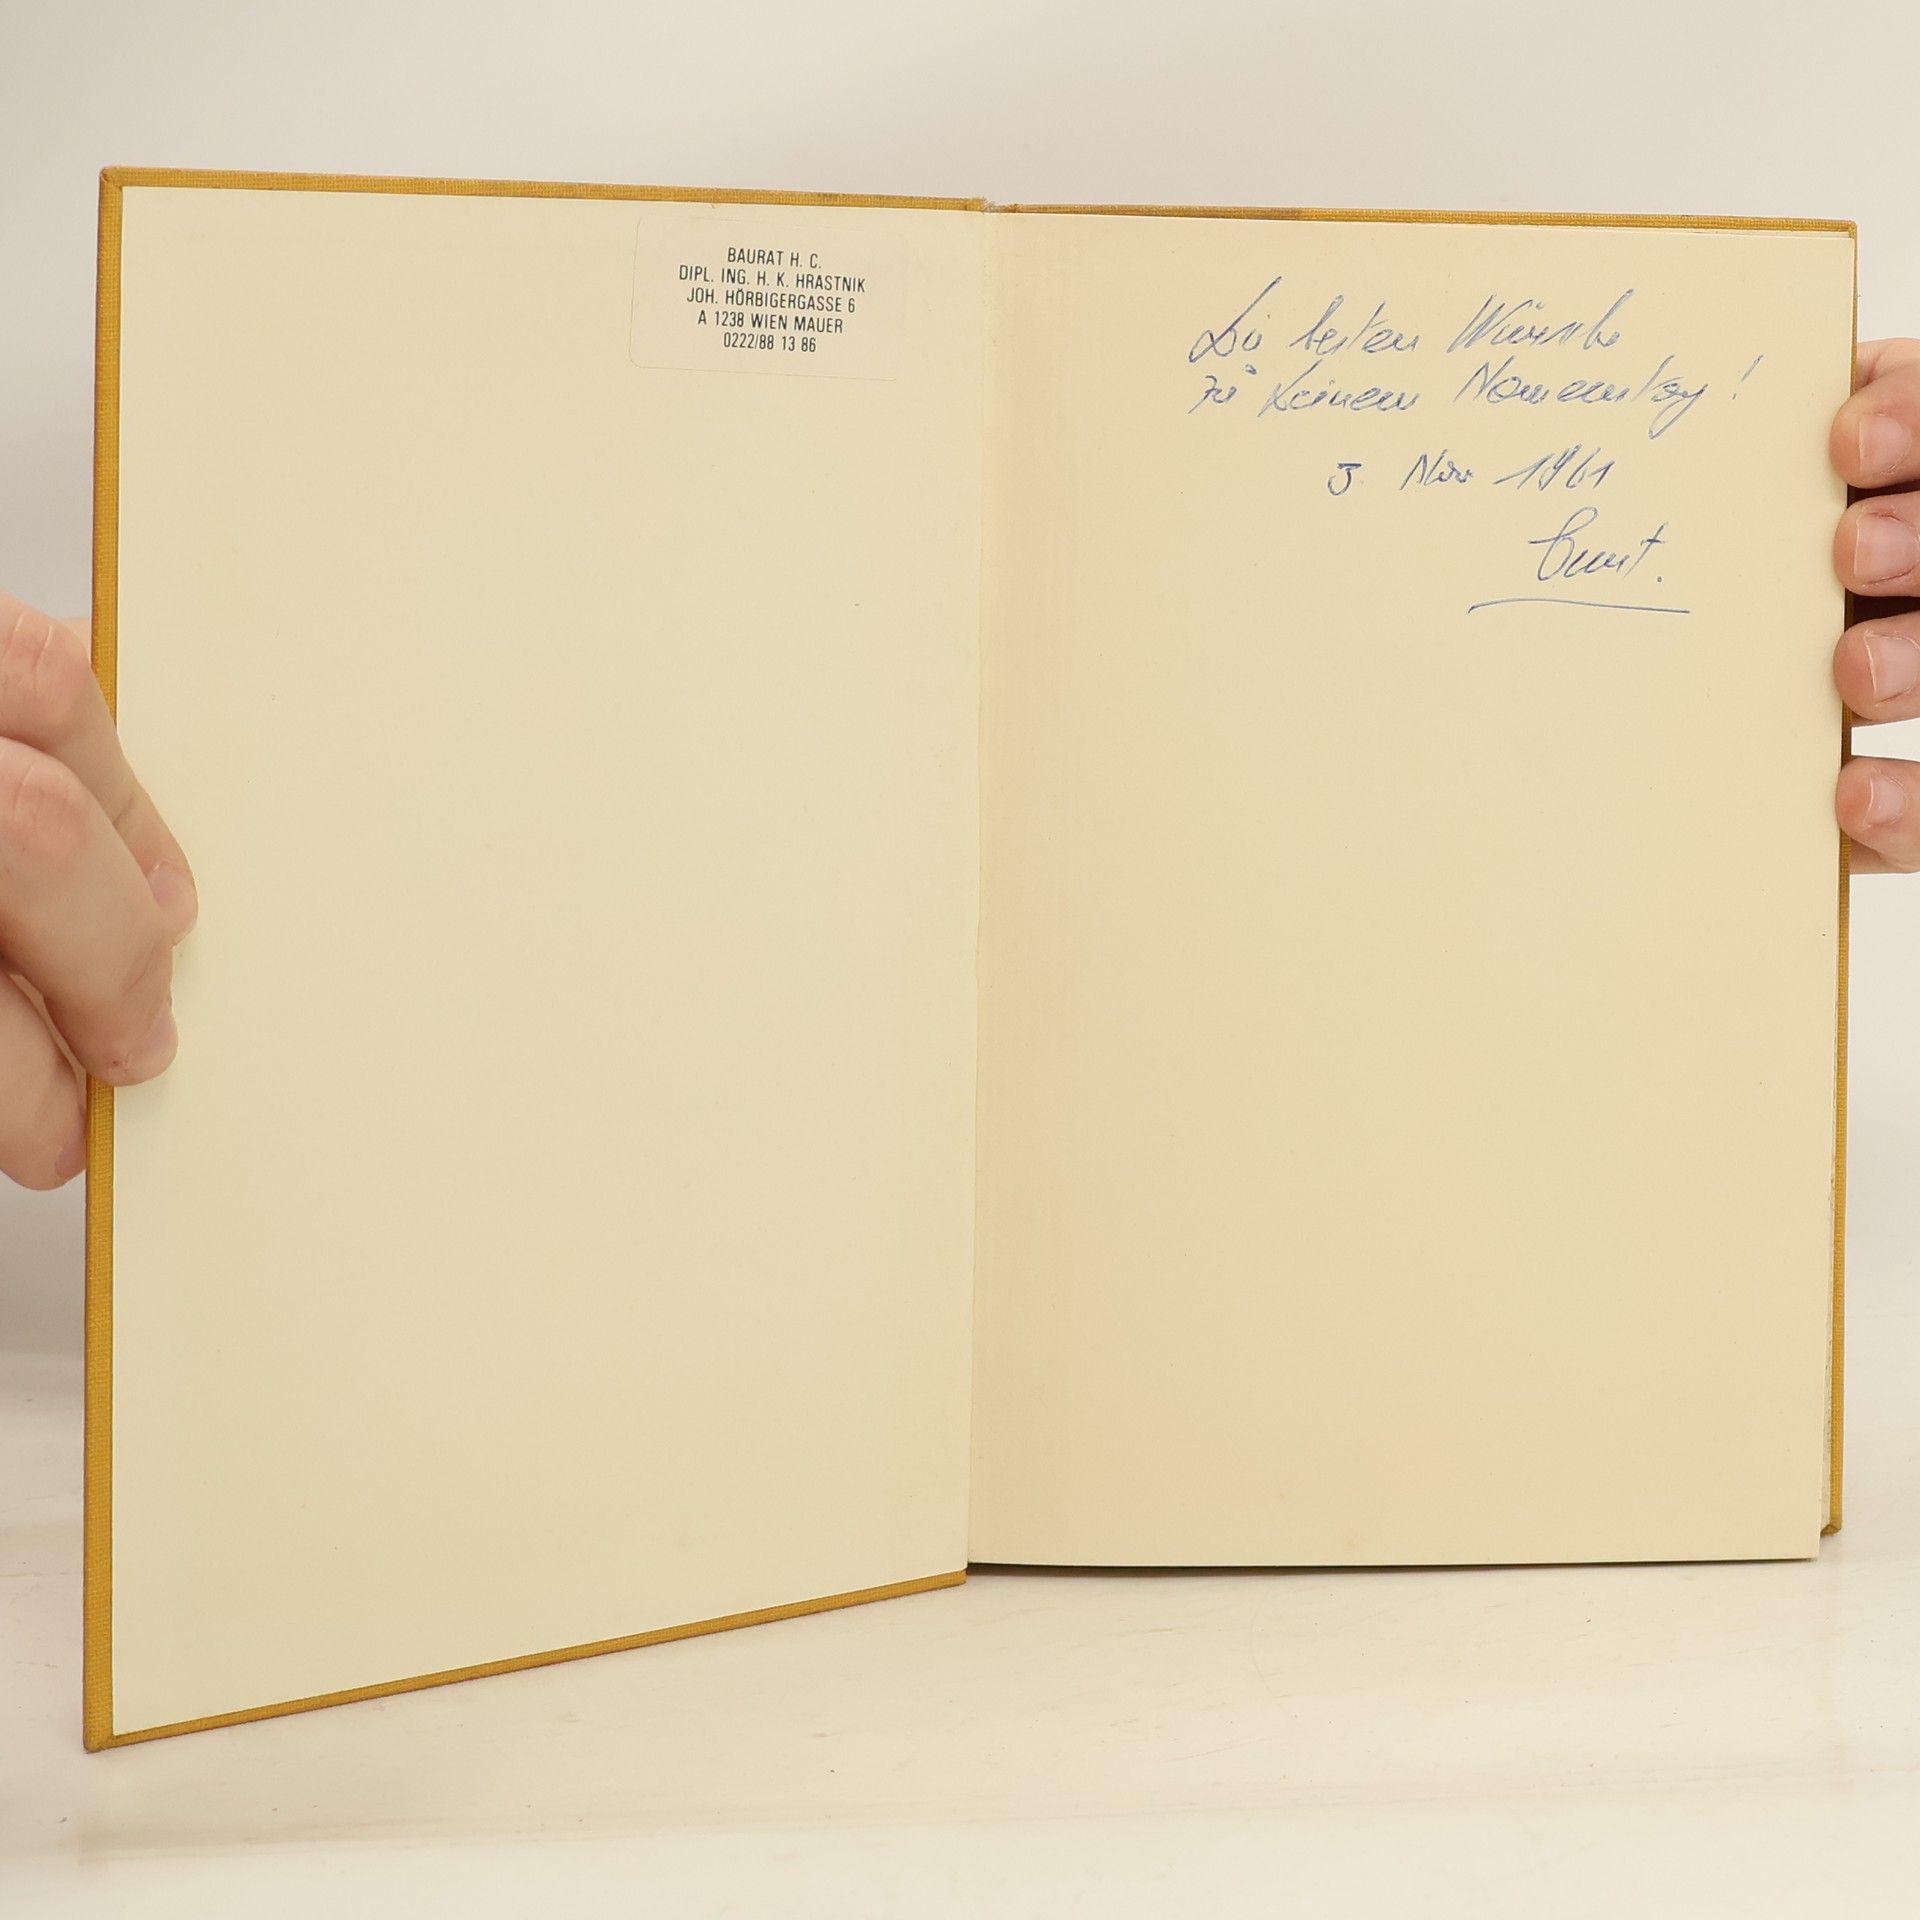 BAURAT H. C.
DIPL. ING. H. K. HRASTNIK
JOH. HÖRBIGERGASSE 6
A 1238 WIEN MAUER
0222/88 13 86
Die besten Wünsche
zu Deinem Namenstag!
3. Nov 1961